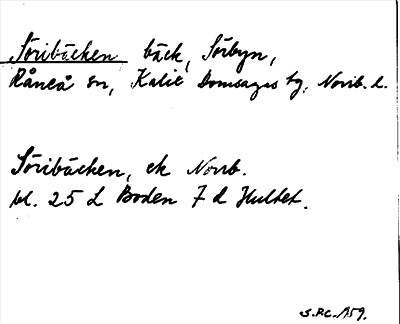 Söribäcken bäck, Sörbyn,
Råneå sn, Kalix Domsagas tg, Norrb. l.
Söribäcken, ek Norrb.
bl. 25 L Boden 7 d Hultet.
S.RC. A59.